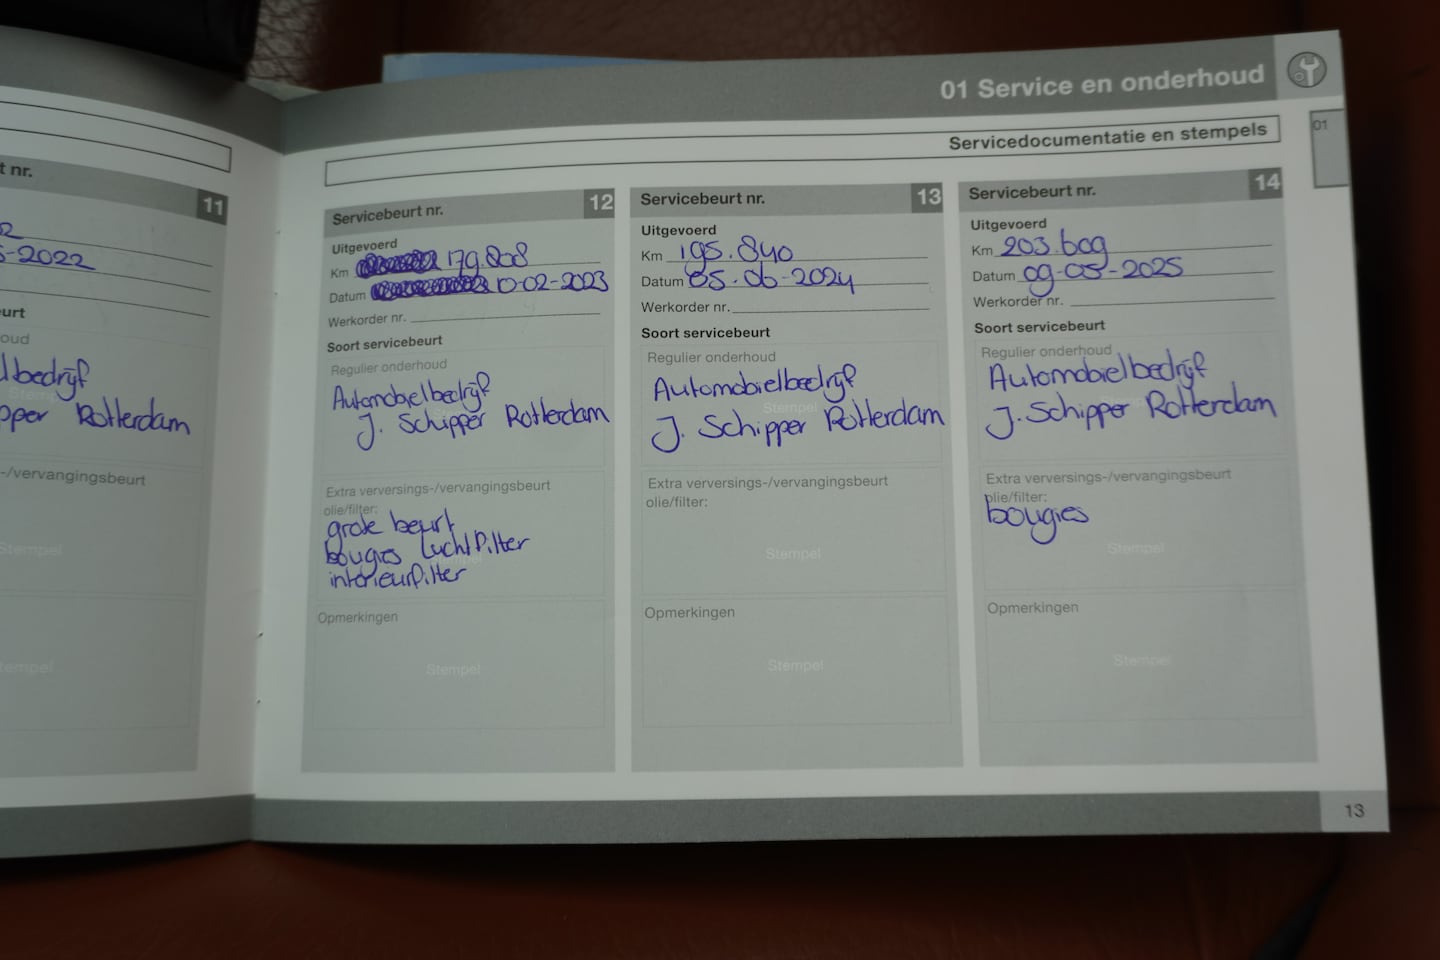 01 Service en onderhoud
01
Servicedocumentatie en stempels
t nr.
11
2
5-2022
urt
oud
lbedrijf
Stempel
pper Rotterdam
-/vervangingsbeurt
Stempel
Stempel
Servicebeurt nr.
12
Uitgevoerd
Km 179.808
Datum 10-02-2023
Werkorder nr.
Soort servicebeurt
Regulier onderhoud
Automobielbedrijf
J. Schipper Rotterdam
Extra verversings-/vervangingsbeurt
olie/filter:
grote beurt
bougies luchtfilter
interieurfilter
Opmerkingen
Stempel
Servicebeurt nr.
13
Uitgevoerd
Km 195.840
Datum 05-06-2024
Werkorder nr.
Soort servicebeurt
Regulier onderhoud
Automobielbedrijf
Stempel
J. Schipper Rotterdam
Extra verversings-/vervangingsbeurt
olie/filter:
Stempel
Opmerkingen
Stempel
Servicebeurt nr.
14
Uitgevoerd
Km 203.609
Datum 09-05-2025
Werkorder nr.
Soort servicebeurt
Regulier onderhoud
Automobielbedrijf
J. Schipper Rotterdam
Extra verversings-/vervangingsbeurt
olie/filter:
bougies
Stempel
Opmerkingen
Stempel
13